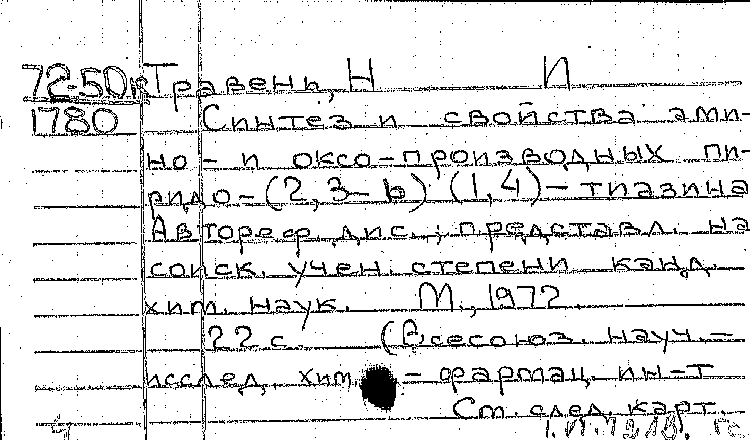 72-50к Травень, Н И
1780 Синтез и свойства ами-
но- и оксо-производных пи-
ридо-(2,3-b) (1,4)-тиазина
Автореф. дис., представл. на
соиск. учен. степени канд.
хим. наук. М., 1972.
22 с. (Всесоюз. науч.-
исслед. хим.-фармац. ин-т
См. след. карт.